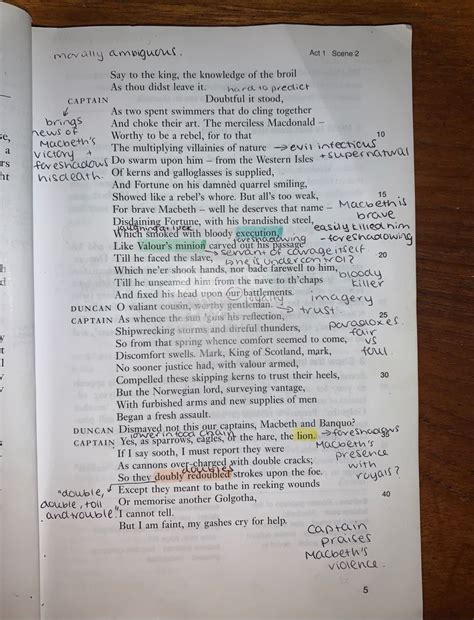 morally ambiguous.
Act 1 Scene 2
Say to the king, the knowledge of the broil
As thou didst leave it.
hard to predict
CAPTAIN Doubtful it stood,
As two spent swimmers that do cling together
And choke their art. The merciless Macdonald –
Worthy to be a rebel, for to that 10
The multiplying villainies of nature → evil infectious
+ supernatural
Do swarm upon him – from the Western Isles
Of kerns and galloglasses is supplied,
And Fortune on his damnèd quarrel smiling,
Showed like a rebel's whore. But all's too weak, 15
For brave Macbeth – well he deserves that name –
Disdaining Fortune, with his brandished steel,
Which smoked with bloody execution,
foreshadowing
Like Valour's minion carved out his passage
→ servant of courage itself
Till he faced the slave, 20
→ he is under control?
Which ne'er shook hands, nor bade farewell to him,
Till he unseamed him from the nave to th'chaps
And fixed his head upon our battlements.
loyalty
DUNCAN O valiant cousin, worthy gentleman.
→ trust.
CAPTAIN As whence the sun 'gins his reflection, 25
Shipwrecking storms and direful thunders,
So from that spring whence comfort seemed to come,
Discomfort swells. Mark, King of Scotland, mark,
No sooner justice had, with valour armed,
Compelled these skipping kerns to trust their heels, 30
But the Norwegian lord, surveying vantage,
With furbished arms and new supplies of men
Began a fresh assault.
DUNCAN Dismayed not this our captains, Macbeth and Banquo?
lower in food chain
CAPTAIN Yes, as sparrows, eagles, or the hare, the lion. 35
If I say sooth, I must report they were
As cannons over-charged with double cracks;
doubles
So they doubly redoubled strokes upon the foe.
Except they meant to bathe in reeking wounds
Or memorise another Golgotha, 40
I cannot tell.
But I am faint, my gashes cry for help.
brings
news of
Macbeth's
victory +
foreshadows
his death.
Macbeth is
brave
easily killed him
- foreshadowing
bloody
killer
imagery
paradoxes.
fair
vs
foul.
→ foreshadows
Macbeth's
presence
with
royals?
"double,
double, toil
and trouble"
Captain
praises
Macbeth's
violence.
5